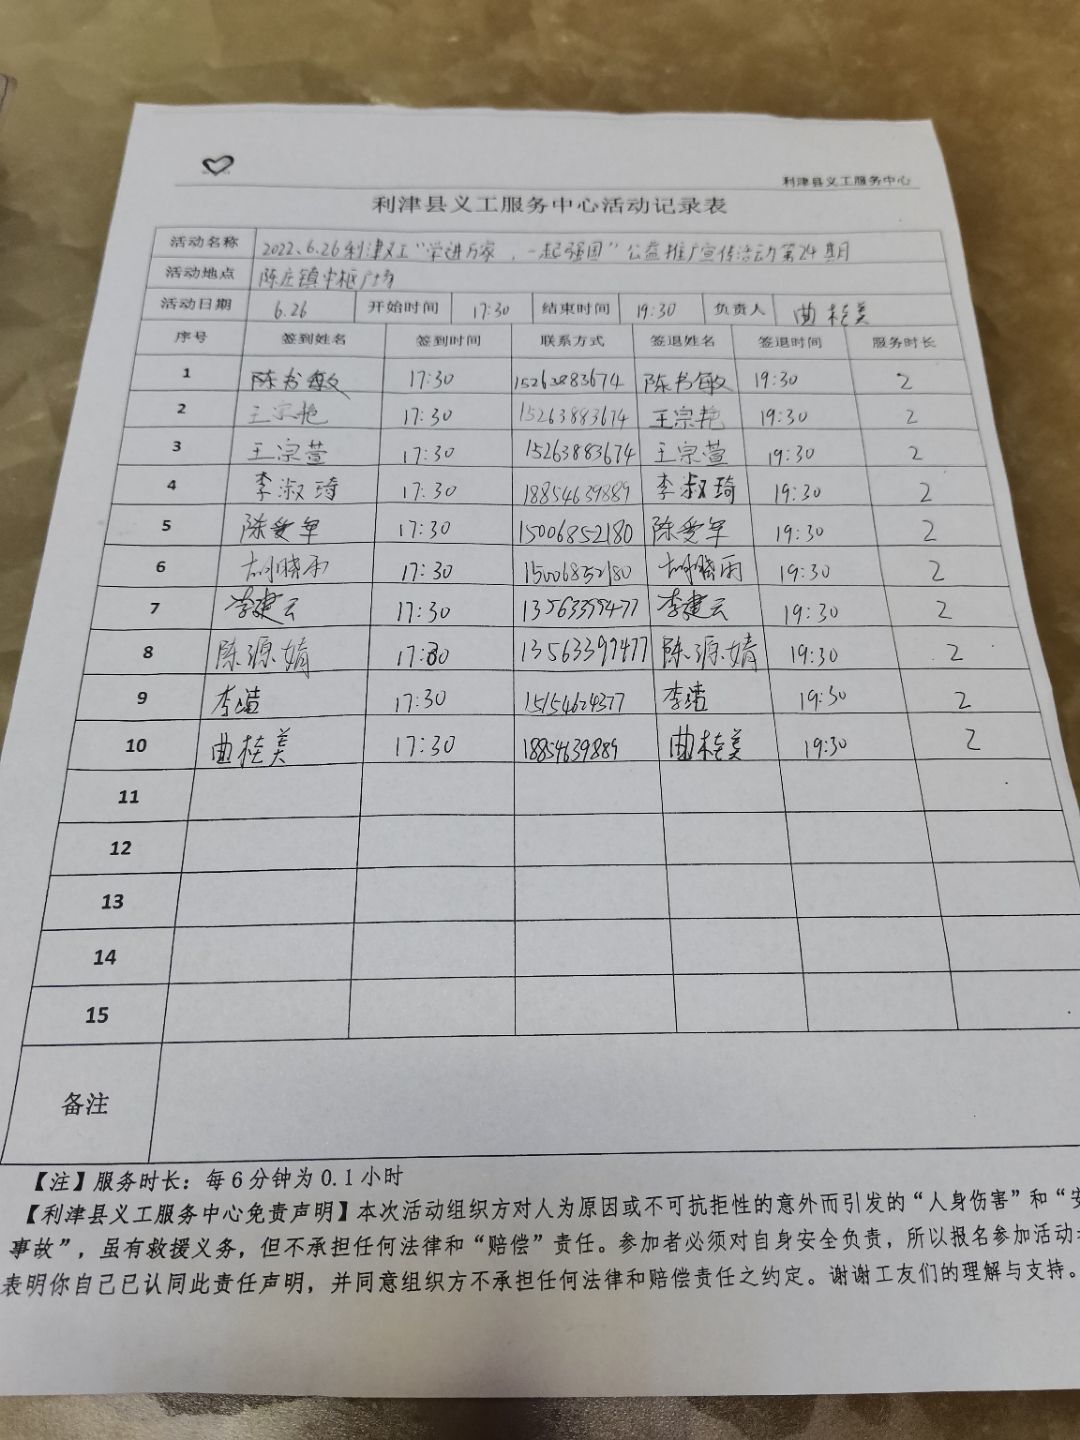 利津县义工服务中心
利津县义工服务中心活动记录表
活动名称 2022.6.26利津义工“学进万家，一起强国”公益推广宣传活动第24期
活动地点 陈庄镇中枢广场
活动日期 6.26 开始时间 17:30 结束时间 19:30 负责人 曲桂美
序号 签到姓名 签到时间 联系方式 签退姓名 签退时间 服务时长
1 陈书敏 17:30 15263883674 陈书敏 19:30 2
2 王宗艳 17:30 15263883674 王宗艳 19:30 2
3 王宗萱 17:30 15263883674 王宗萱 19:30 2
4 李淑琦 17:30 18854639889 李淑琦 19:30 2
5 陈爱军 17:30 15006852180 陈爱军 19:30 2
6 胡晓雨 17:30 15006852180 胡晓雨 19:30 2
7 李建云 17:30 13563399477 李建云 19:30 2
8 陈源婧 17:30 13563399477 陈源婧 19:30 2
9 李靖 17:30 15154624377 李靖 19:30 2
10 曲桂美 17:30 18854639889 曲桂美 19:30 2
11
12
13
14
15
备注
【注】服务时长：每6分钟为0.1小时
【利津县义工服务中心免责声明】本次活动组织方对人为原因或不可抗拒性的意外而引发的“人身伤害”和“安
事故”，虽有救援义务，但不承担任何法律和“赔偿”责任。参加者必须对自身安全负责，所以报名参加活动
表明你自己已认同此责任声明，并同意组织方不承担任何法律和赔偿责任之约定。谢谢工友们的理解与支持。